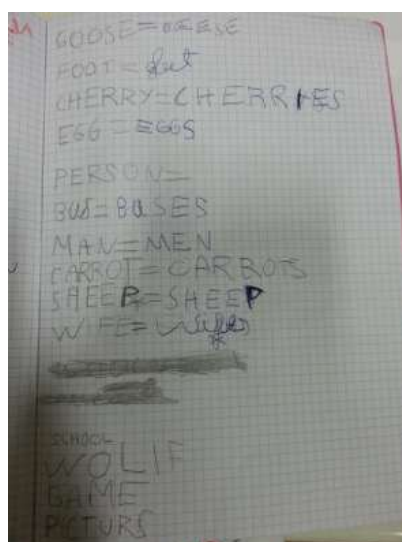 GOOSE=GEESE
FOOT=
CHERRY=CHERRIES
EGG=EGGS
PERSON=
BUS=BUSES
MAN=MEN
CARROT=CARROTS
SHEEP=SHEEP
WIFE=
SCHOOL
WOLIF
GAME
PICTURS